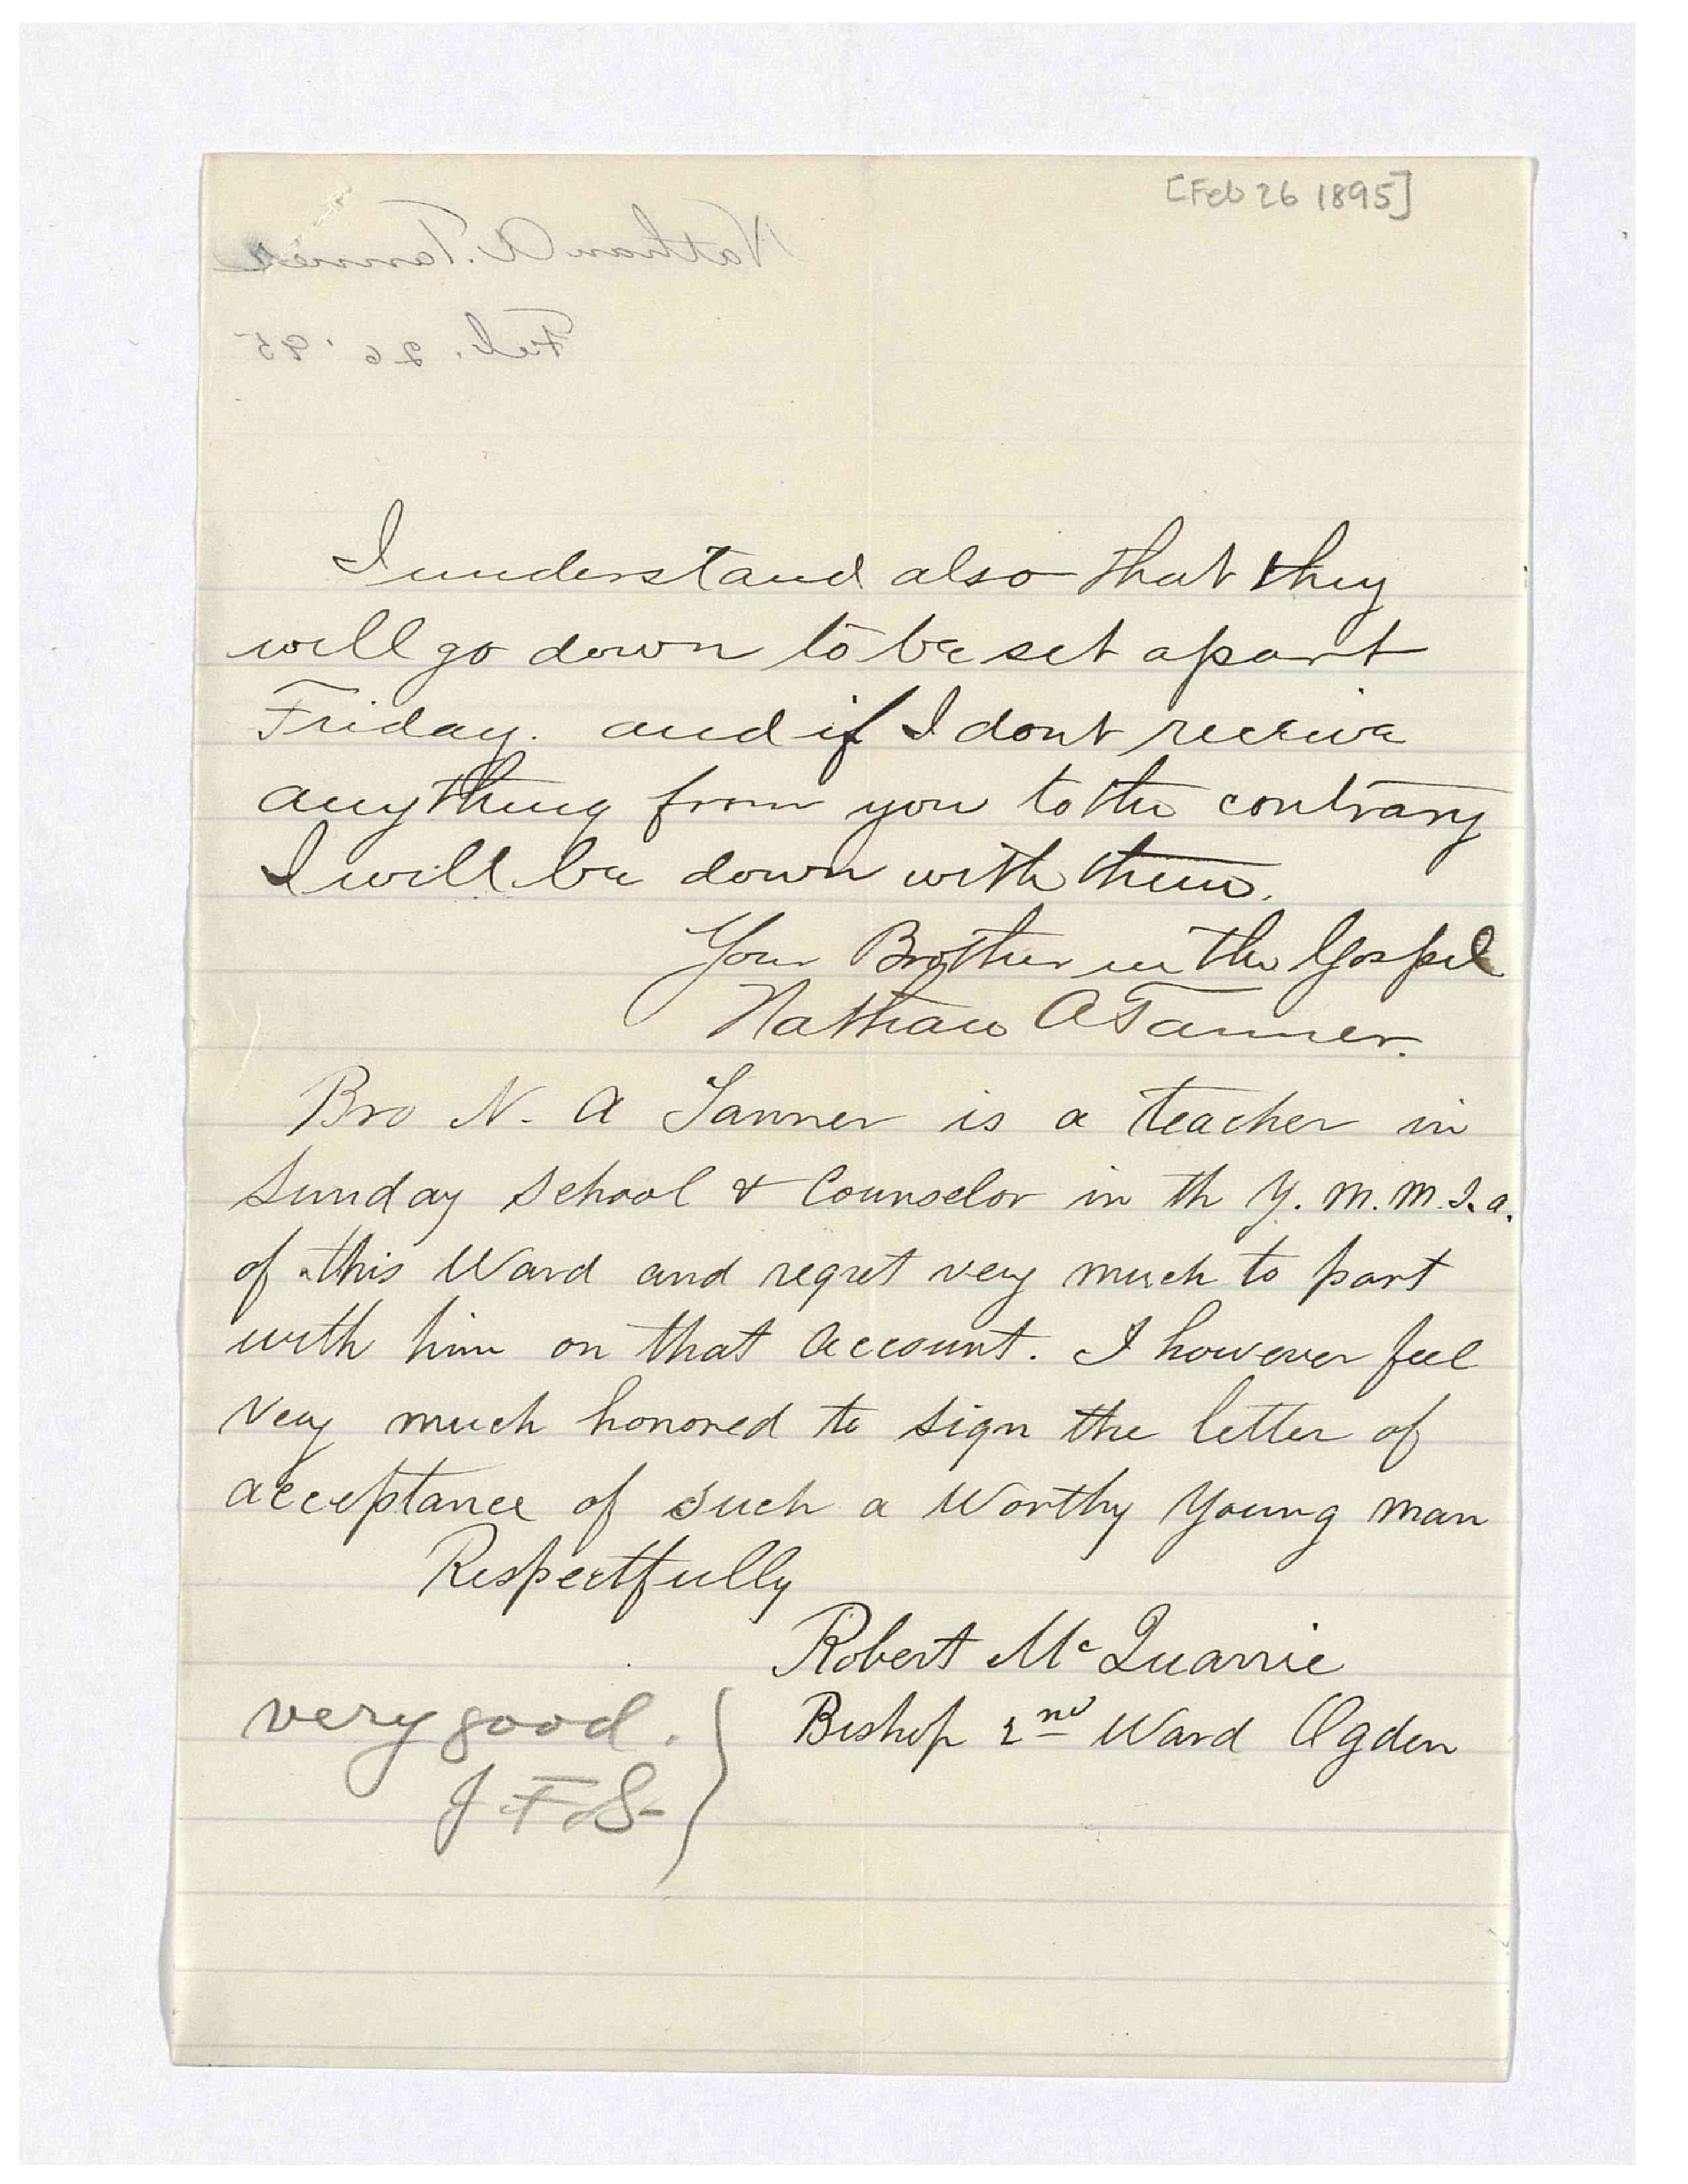 [Feb 26 1895]
Nathan A. Tanner
Feb. 26 '95
I understand also that they
will go down to be set apart
Friday. and if I dont receive
anything from you to the contrary
I will be down with them.
Your Brother in the Gospel
Nathan A Tanner.
Bro N. A Tanner is a teacher in
Sunday School & Counselor in th Y. M. M. I. A.
of this Ward and regret very much to part
with him on that account. I however feel
very much honored to sign the letter of
acceptance of such a Worthy Young man
Respectfully
Robert McQuarrie
Bishop 2nd Ward Ogden
very good.
J. F. S.